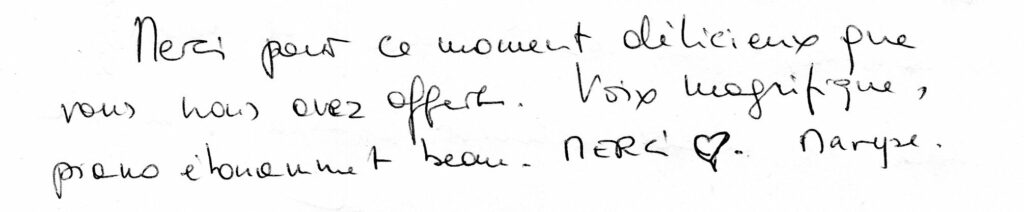 Merci pour ce moment délicieux que
vous nous avez offert. Voix magnifique,
piano étonamment beau. MERCI ♡. Maryse.